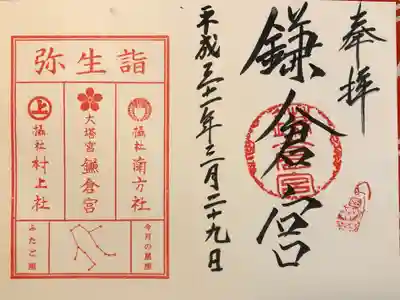 奉拝
鎌倉宮
平成三十一年三月二十九日
弥生詣
摂社
南方社
大塔宮
鎌倉宮
上
摂社
村上社
今月の星座
ふたご座